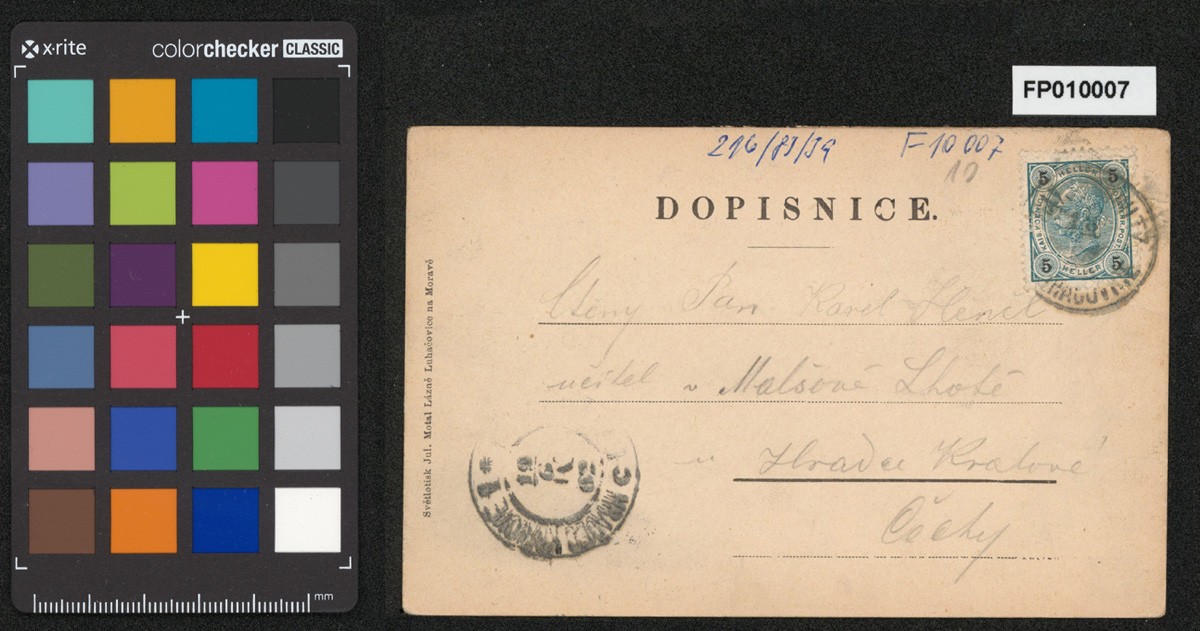 x-rite
colorchecker CLASSIC
mm
FP010007
216/81/59
F 10 007
10
DOPISNICE.
5 HELLER 5
5 HELLER 5
Ctěný Pan Karel Hencl
učitel v Malšově Lhotě
u Hradce Králové
Čechy
Světlotisk Jul. Motal Lázně Luhačovice na Moravě